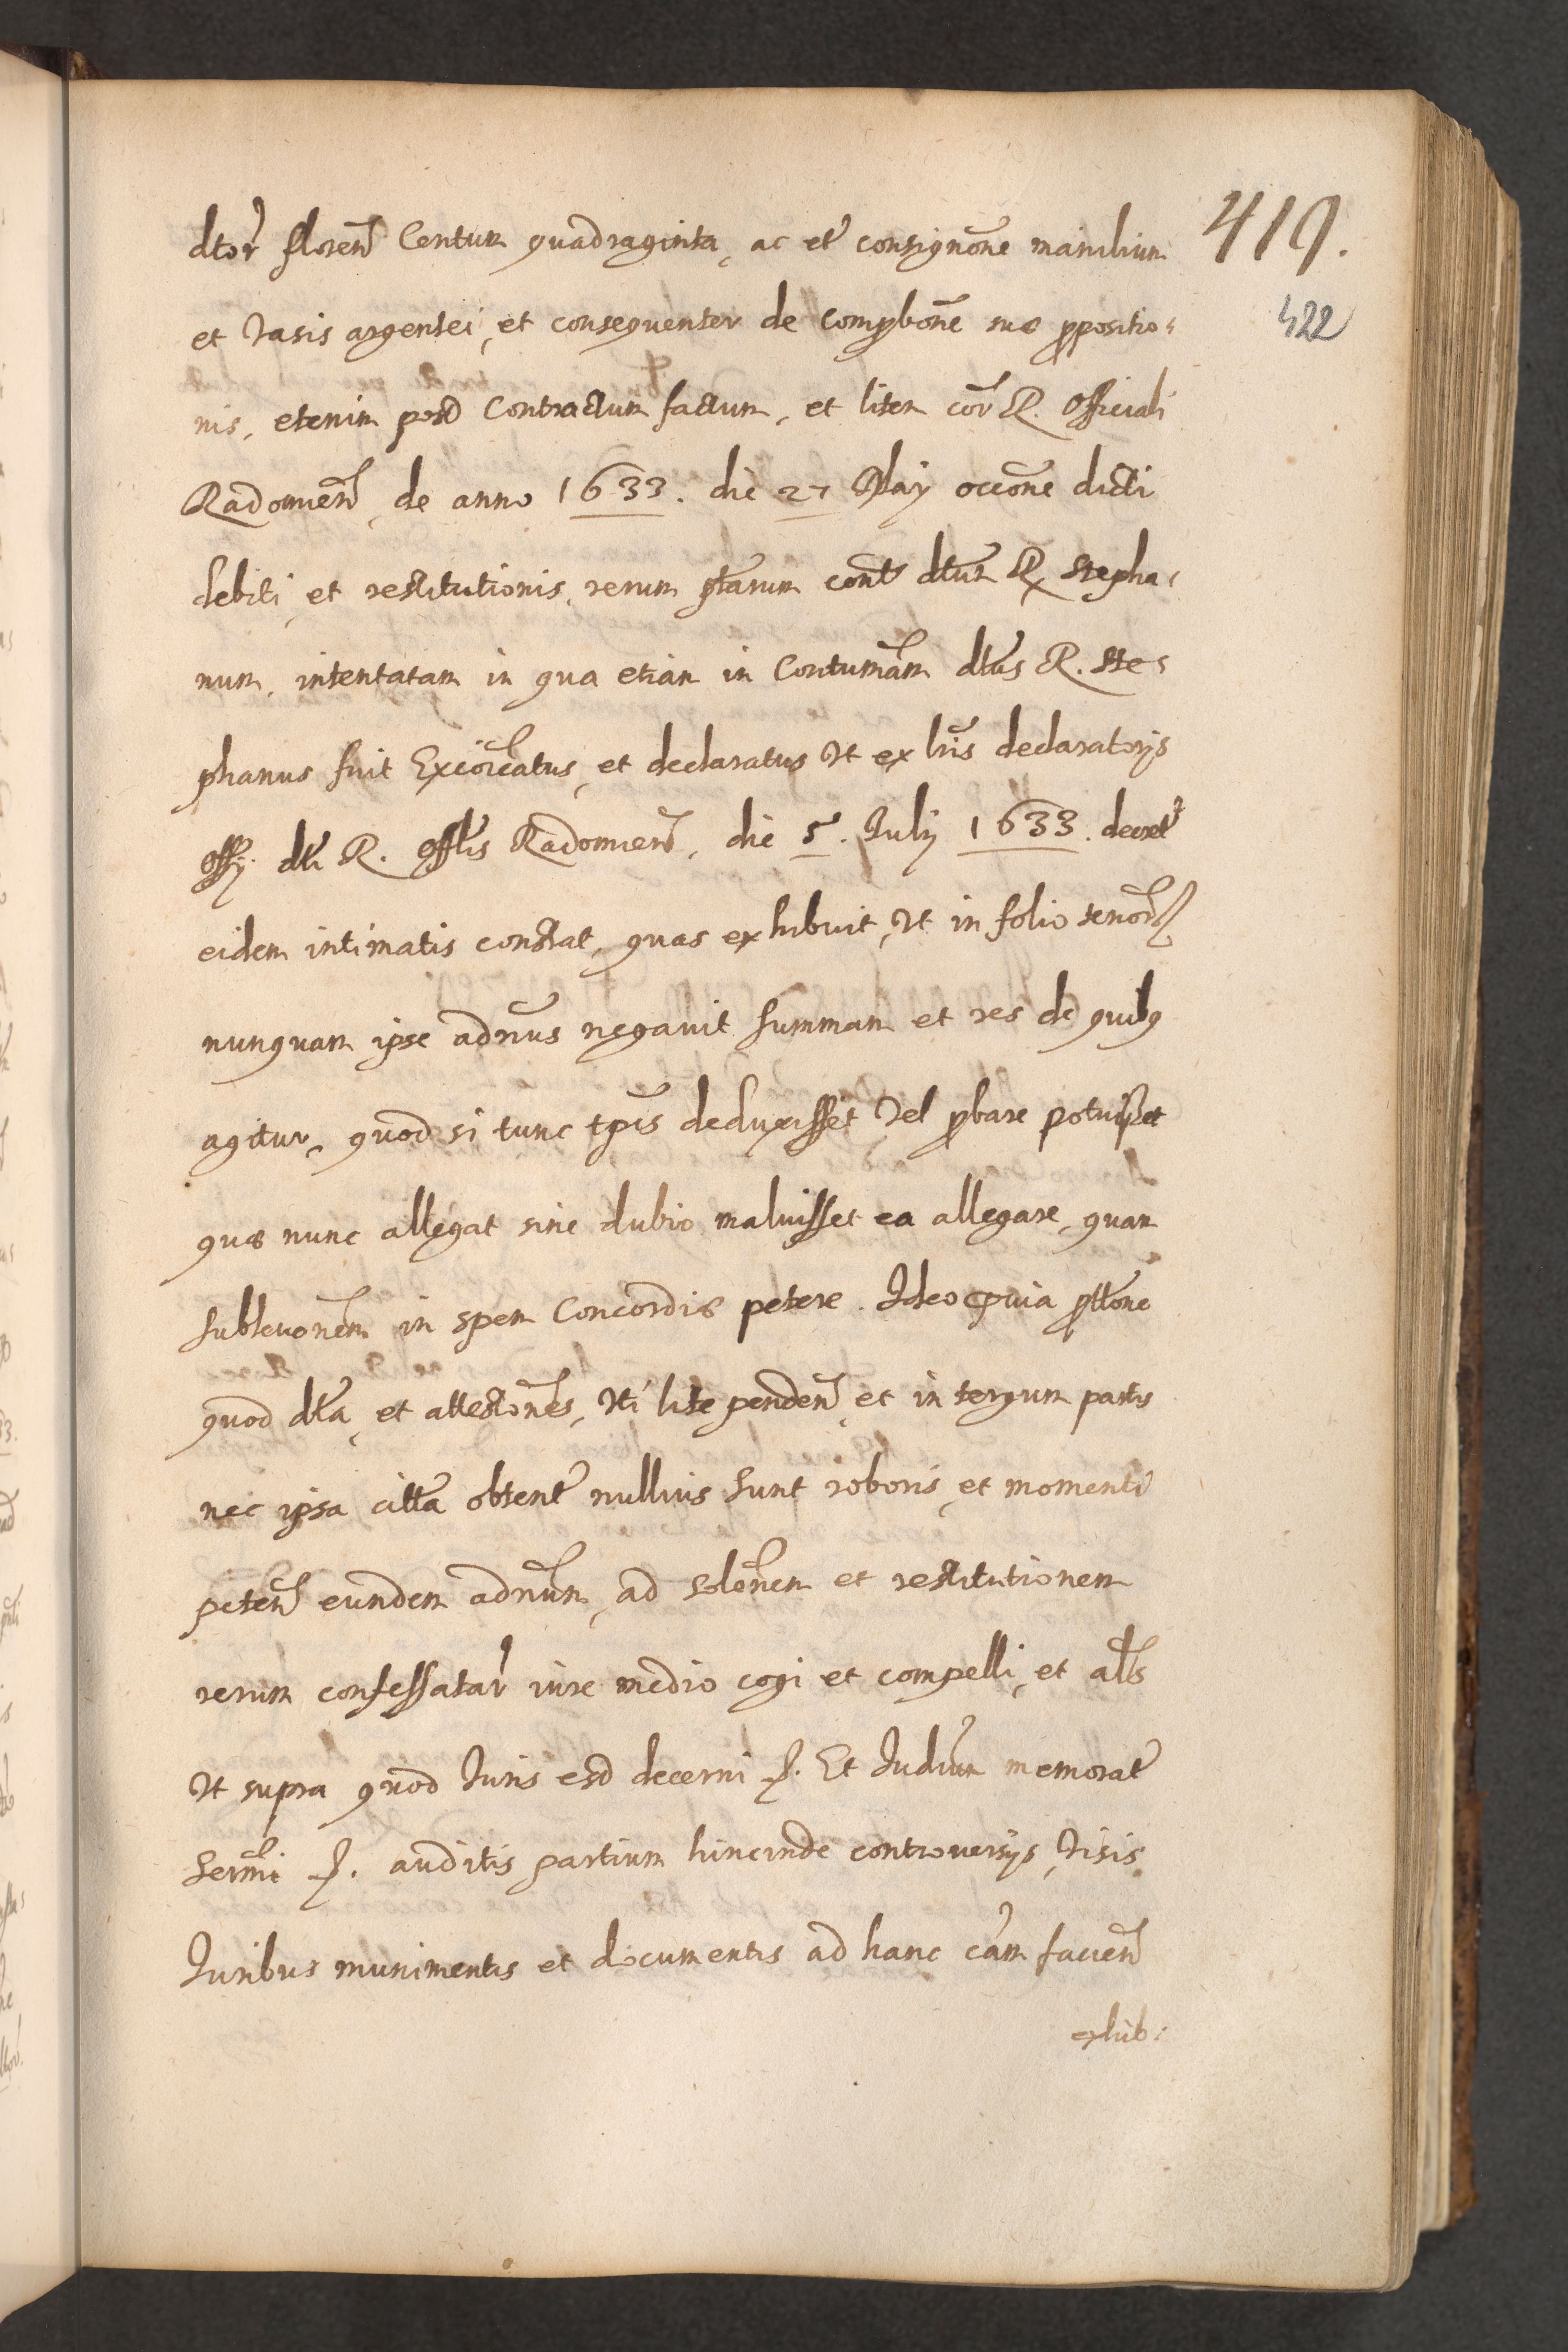 dtor̃ floren̄ Centum quadraginta, ac et̃ consignõne manilium 419.
et Vasis argentei, et consequenter de comp̱bõne suæ p̱positio= 422
nis, etenim post Contractum factum, et litem cor̃ R. Officiali
Radomien̄, de anno 1633. die 27 May occõne dicti
debiti, et restitutionis, rerum p̃tarum cont̃ dtũm R. Stepha=
num, intentatam in qua etiam in Contumãm dtũs R. Ste=
phanus fuit Excõicatus, et declaratus Vt ex lris̃ declaratorijs
Offij. dti R. Offlis Radomien̄, die 5. Julij 1633. decret̃
eidem intimatis constat, quas exhibuit, Vt in folio tenor̃
nunquam ipse adnũs negavit summam et res de quibq
agitur, quod si tunc tpĩs deduxisset, Vel p̱bare potuisset
quæ nunc allegat sine dubio maluisset ea allegare, quam
sublevonẽm in spem Concordiæ petere. Ideo quia p̱ttõne
quod dta, et attestonẽs, Vti lite penden̄, et in tergum partis
nec ipsa citta obtent̃ nullius sunt roboris, et momenti
peten̄ eundem adnũm, ad solonẽm et restitutionem
rerum confessatar̃ iure medio cogi et compelli, et als
Vt supra quod Juris est decerni p. Et Judiũm memorat̃
Sermi p. auditis partium hincinde controversijs, Visis
Juribus munimentis et documentis ad hanc cãm facien̄
exhib: